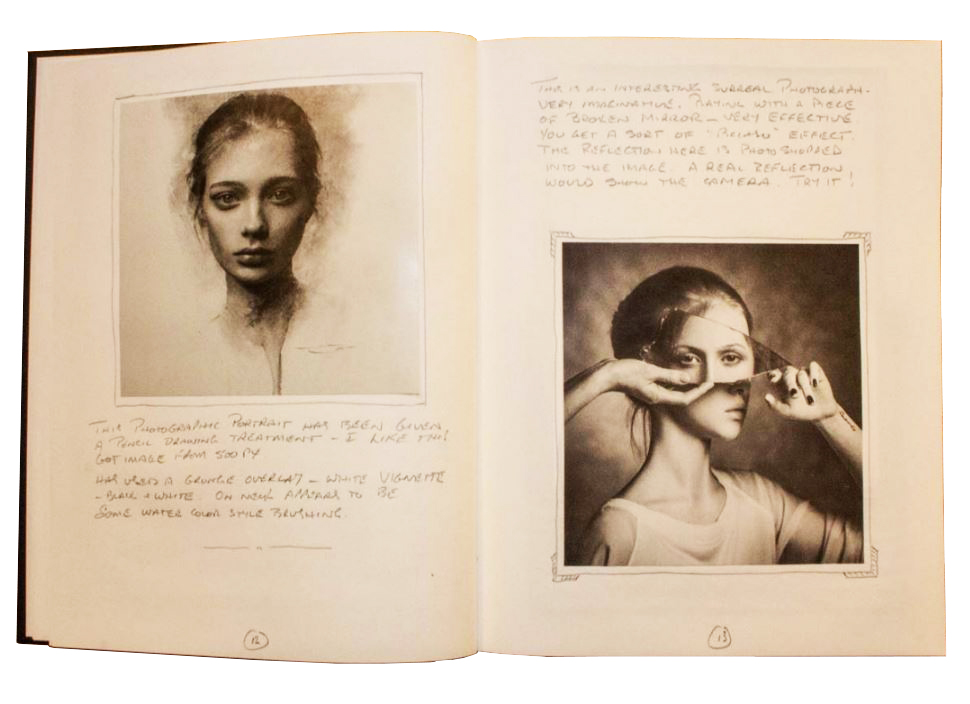 THIS PHOTOGRAPHIC PORTRAIT HAS BEEN GIVEN
A PENCIL DRAWING TREATMENT - I LIKE THIS
GOT IMAGE FROM 500PX
HAS USED A GRUNGE OVERLAY - WHITE VIGNETTE
- BLACK + WHITE. ON NECK APPEARS TO BE
SOME WATER COLOR STYLE BRUSHING.
12
THIS IS AN INTERESTING SURREAL PHOTOGRAPH -
VERY IMAGINATIVE. PLAYING WITH A PIECE
OF BROKEN MIRROR - VERY EFFECTIVE
YOU GET A SORT OF "PICASSO" EFFECT.
THE REFLECTION HERE IS PHOTOSHOPPED
INTO THE IMAGE. A REAL REFLECTION
WOULD SHOW THE CAMERA. TRY IT!
13